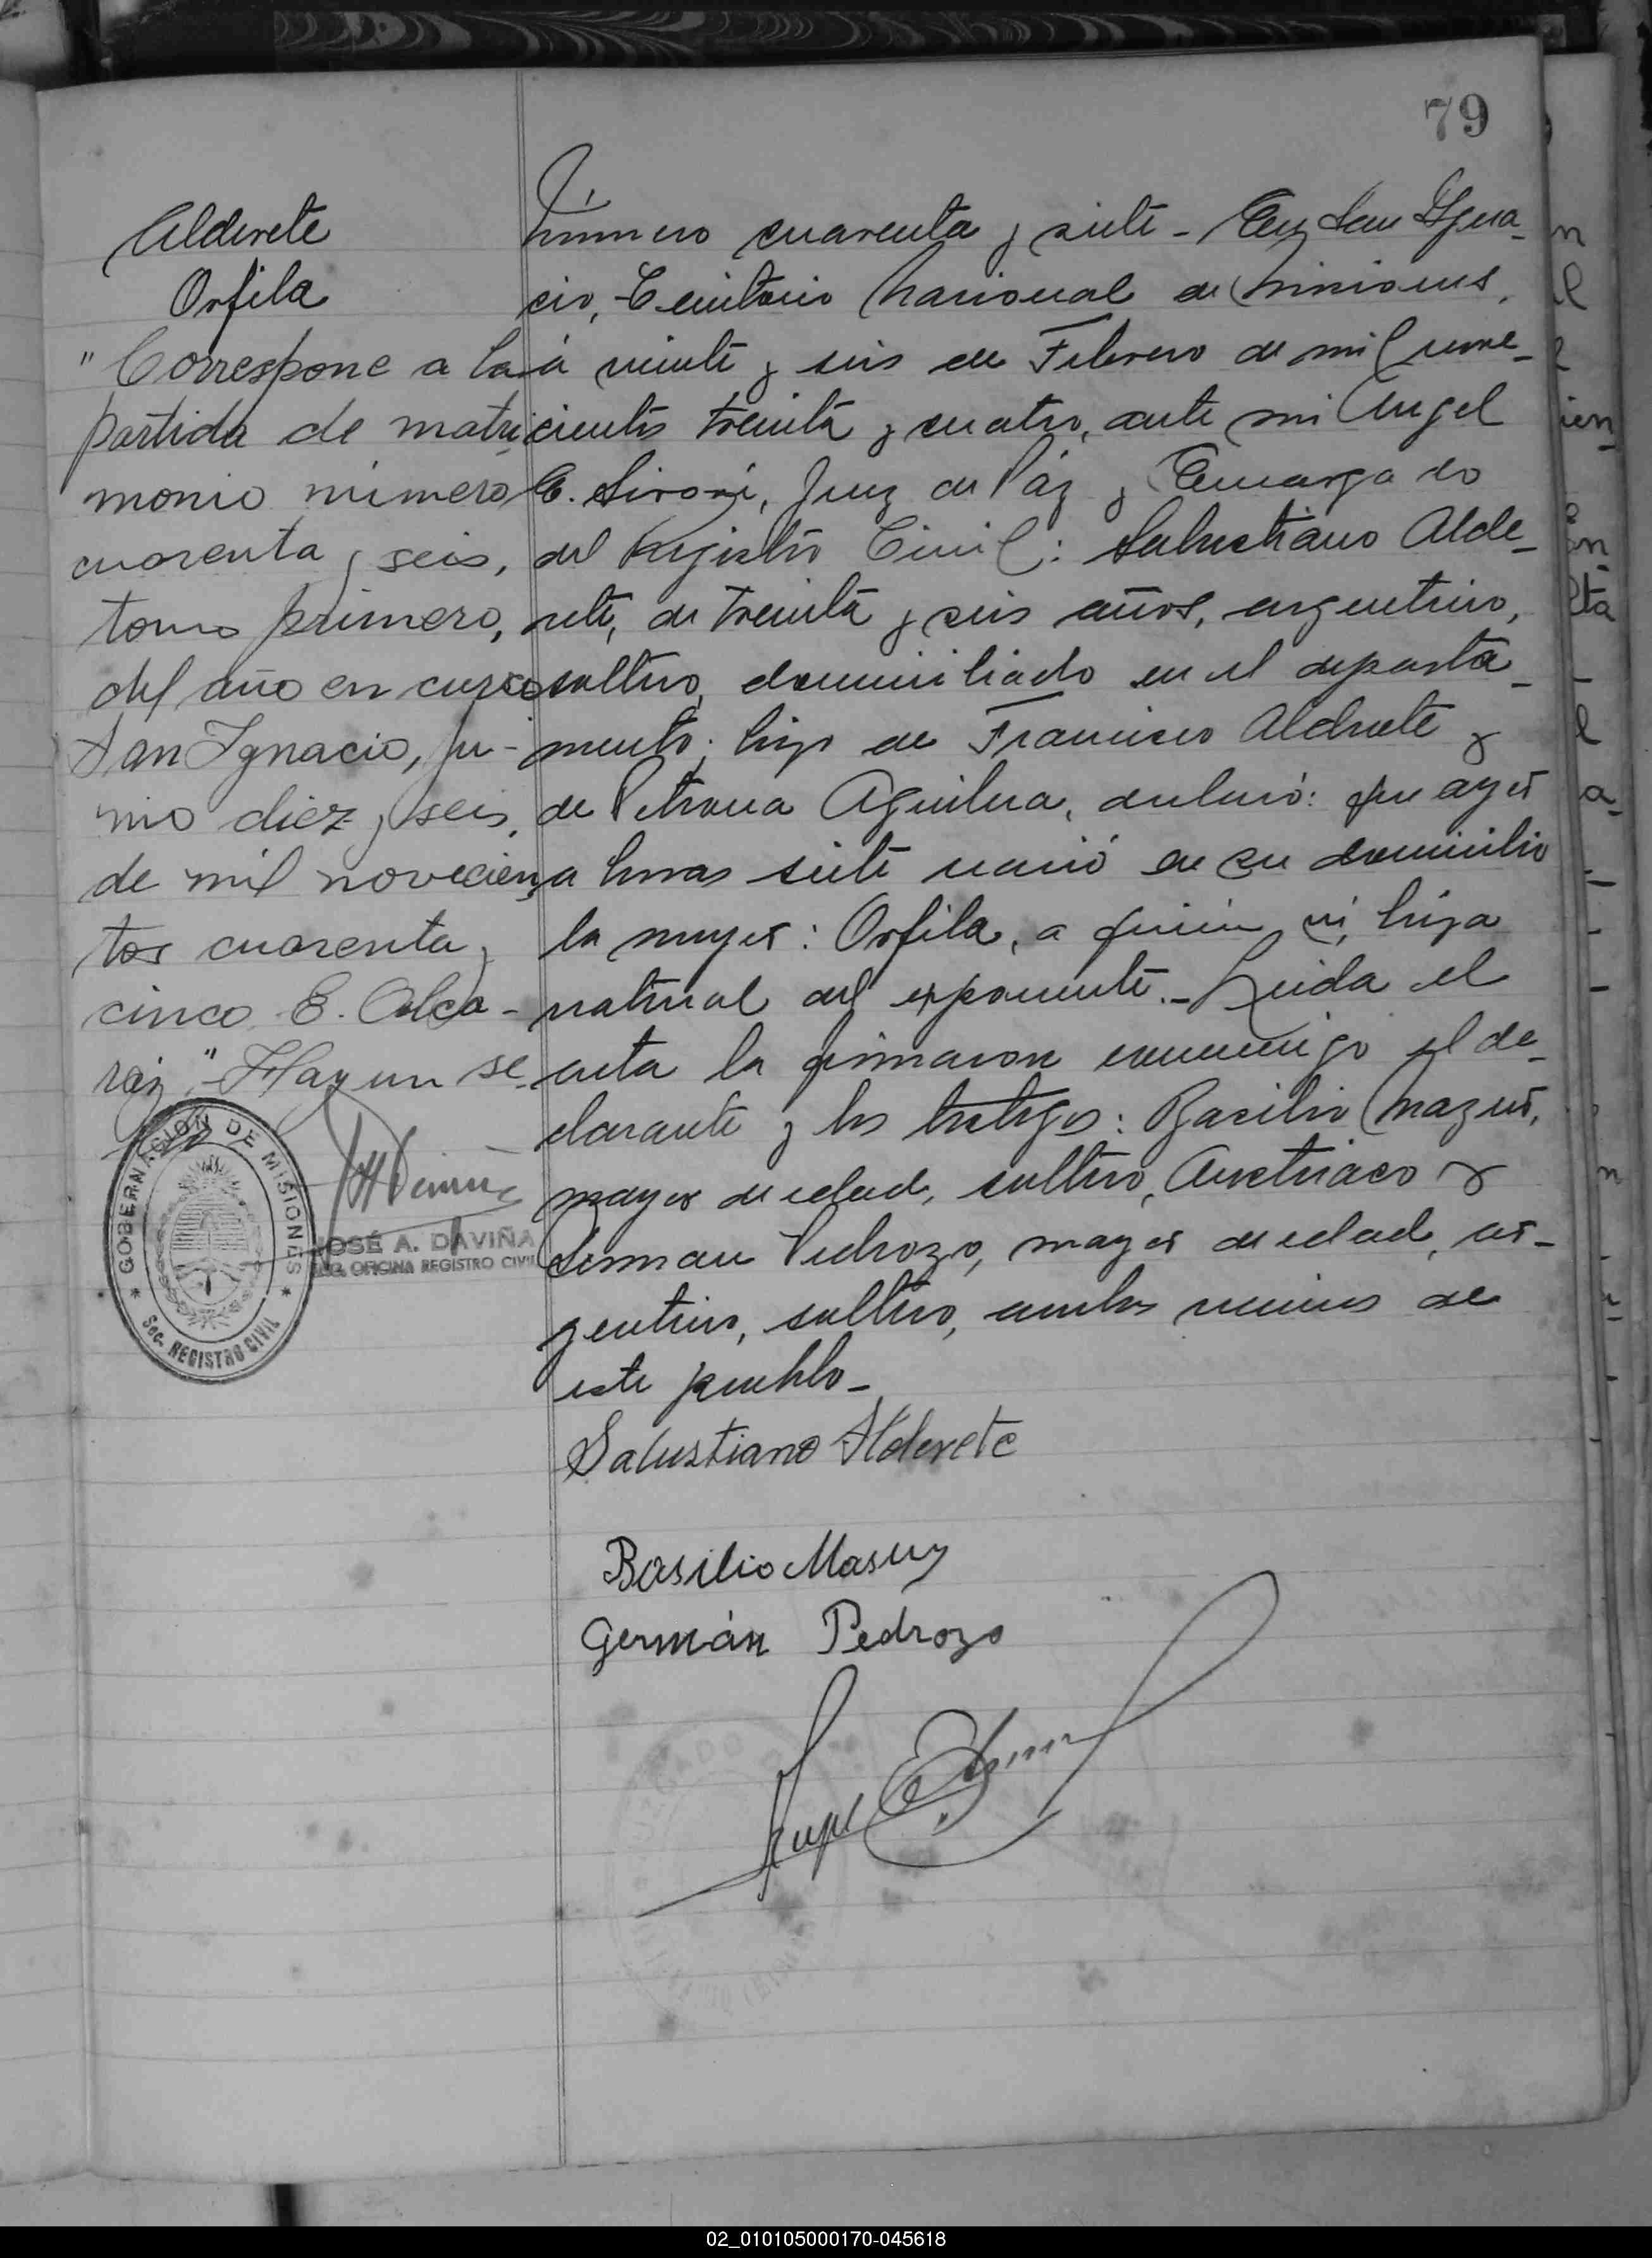 79
Alderete
Orfila
"Corresponde a la
partida de matri-
monio número
cuarenta y seis,
tomo primero,
del año en curso
San Ignacio, ju-
nio diez y seis,
de mil novecien-
tos cuarenta y
cinco. E. Alca-
raz". Hay un se-
GOBERNACION DE MISIONES
Sec. REGISTRO CIVIL
JOSÉ A. DAVIÑA
OFICINA REGISTRO CIVIL
Número cuarenta y siete - En San Igna-
cio, Territorio Nacional de Misiones,
a veinte y seis de Febrero de mil nove-
cientos treinta y cuatro, ante mi Angel
E. Sirozi, Juez de Páz y Encargado
del Registro Civil: Salustiano Alde-
rete, de treinta y seis años, argentino,
soltero, domiciliado en el departa-
mento; hijo de Francisco Alderete y
de Petrona Aguilera, declaró: que ayer
a horas siete nació en su domicilio
la mujer: Orfila, a quien vi, hija
natural del exponente.- Leida el
acta la firmaron conmigo el de-
clarante y los testigos: Basilio Mazur,
mayor de edad, soltero, Austriaco y
German Pedrozo, mayor de edad, ar-
gentino, soltero, ambos vecinos de
este pueblo-
Salustiano Alderete
Basilio Masur
Germán Pedrozo
Angel E.
02_010105000170-045618